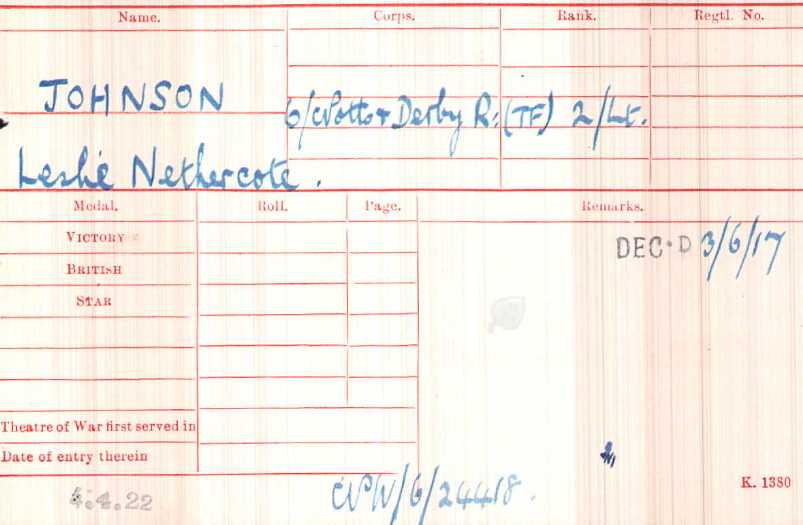 Name. Corps. Rank. Regtl. No.
JOHNSON 6/Notts & Derby R: (TF) 2/Lt.
Leslie Nethercote.
Medal. Roll. Page. Remarks.
VICTORY DEC.D 3/6/17
BRITISH
STAR
Theatre of War first served in
Date of entry therein
K. 1380
4.4.22 NW/6/24418.